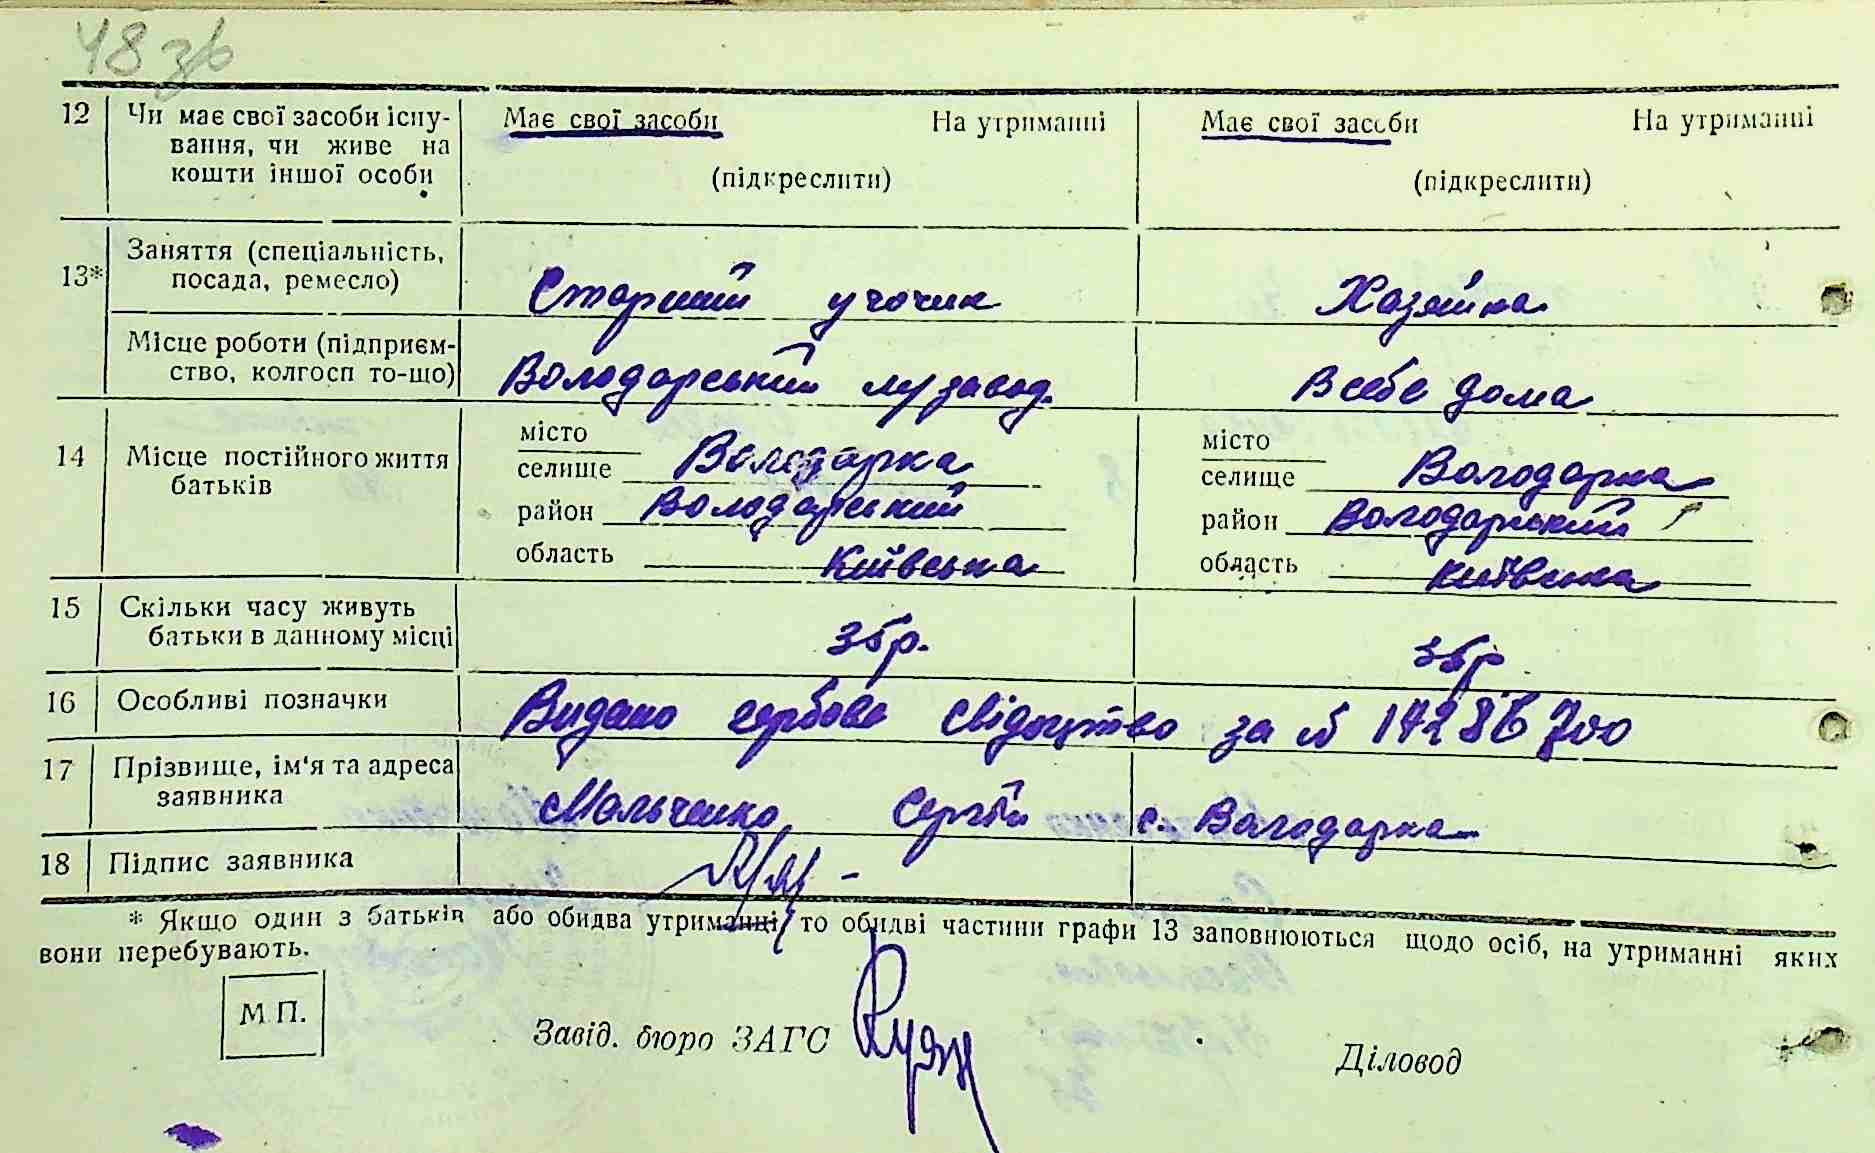 48 зв
12 Чи має свої засоби існу- Має свої засоби На утриманні Має свої засоби На утриманні
вання, чи живе на
кошти іншої особи (підкреслити) (підкреслити)
13* Заняття (спеціальність,
посада, ремесло) Старший Хазяйка
Місце роботи (підприєм-
ство, колгосп то-що) Володарський завод. В себе дома
14 Місце постійного життя
батьків
місто місто
селище Володарка селище Володарка
район Володарський район Володарський
область Київська область Київська
15 Скільки часу живуть
батьки в данному місці р. р
16 Особливі позначки Видано гербове свідоцтво за №
17 Прізвище, ім'я та адреса
заявника Мальченко Сергій с. Володарка
18 Підпис заявника
* Якщо один з батьків або обидва утриманці, то обидві частини графи 13 заповнюються щодо осіб, на утриманні яких
вони перебувають.
М П.
Завід. бюро ЗАГС Діловод